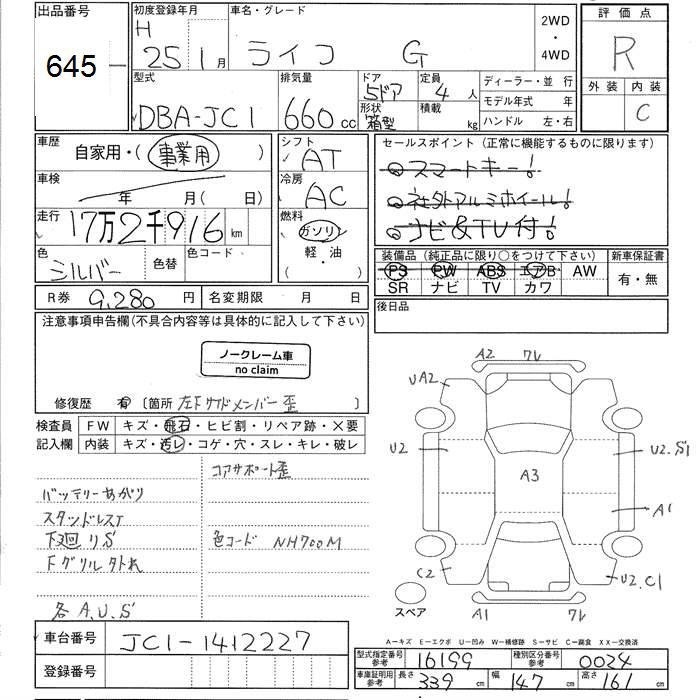 出品番号
645
初度登録年月
H 25 1月
車名・グレード
ライフ G
2WD
・
4WD
評価点
R
外装 内装
C
型式
DBA-JC1
排気量
660 cc
ドア
5ドア
形状
箱型
定員
4 人
積載
kg
ディーラー・並 行
モデル年式 年
ハンドル 左・右
車歴
自家用・(事業用 )
車検
年 月( 日)
走行
17万2千916 km
色
シルバー
色替
色コード
シフト
AT
冷房
AC
燃料
ガソリン
軽・油
セールスポイント (正常に機能するものに限ります)
スマートキー!
社外アルミホイール!
ナビ&TV付!
装備品 (純正品に限り○をつけて下さい)
PS PW ABS エアB AW
SR ナビ TV カワ
新車保証書
有・無
R券 9,280 円
名変期限 月 日
後日品
注意事項申告欄(不具合内容等は具体的に記入して下さい)
ノークレーム車
no claim
修復歴 有 〔箇所 左Fサイドメンバー歪 〕
検査員
記入欄
FW キズ・飛石・ヒビ割・リペア跡・X要
内装 キズ・汚レ・コゲ・穴・スレ・キレ・破レ
コアサポート歪
バッテリーあがり
スタッドレス
下廻りS
色コード NH700M
Fグリル外れ
各A.U.S
A2 ワレ
UA2
U2
U2.S1
A3
A1
C2
U2.C1
スペア
A1 ワレ
A−キズ E−エクボ U−凹み W−補修跡 S−サビ C−腐食 XX−交換済
車台番号
JC1-1412227
登録番号
型式指定番号
参考
16199
種別区分番号
参考
0024
車庫証明用
参考
長さ 339 cm
幅 147 cm
高さ 161 cm